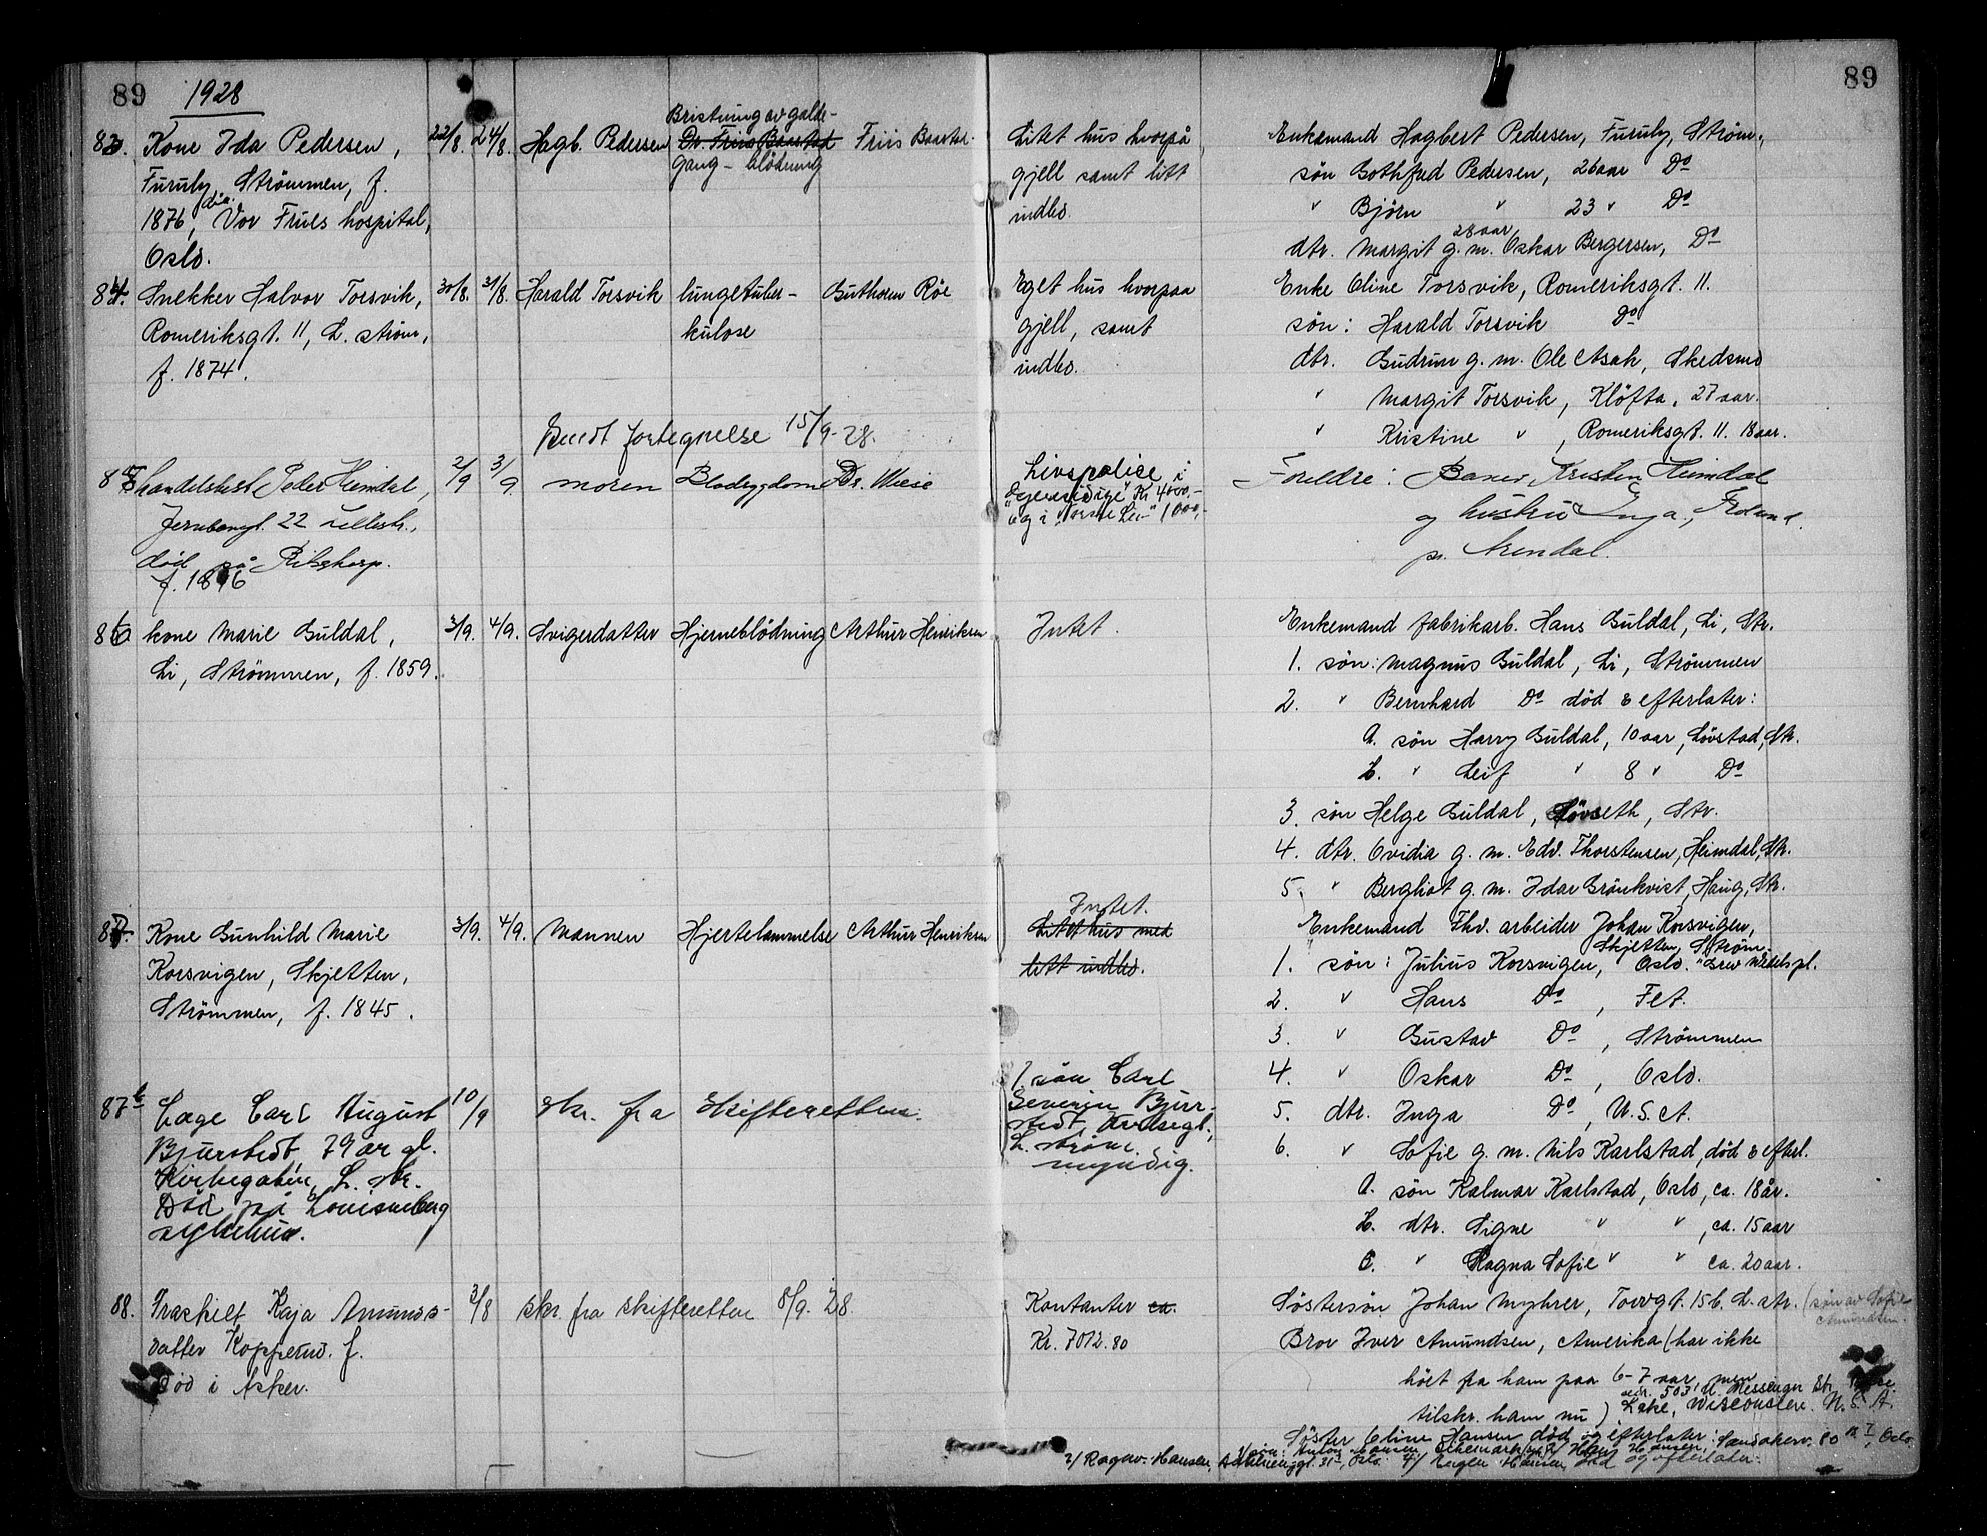 89 1928 89
83. Kone Ida Pedersen, 22/8. 24/8. Hagb. Pedersen Bristning av galde- Dr. Friis Baastad Friis Baastad Litet hus hvorpå Enkemand Hagbert Pedersen, Furuly, Strøm.,
Furuly, Strømmen, f. gang - blödning gjell samt litt søn Gothfred Pedersen, 26 aar Do
1876, Vor Frues hospital, indbo. " Bjørn " 23 " Do
Oslo. dtr. Margit g.m. Oskar Bergersen, Do
28 aar
84. Snekker Halvor Torsvik, 30/8. 31/8. Harald Torsvik lungetuber- Guthorm Röe Eget hus hvorpaa Enke Oline Torsvik, Romeriksgt. 11.
Romeriksgt. 11, L. strøm, kulose gjell, samt søn: Harald Torsvik Do
f. 1874. indbo. dtr. Gudrun g.m. Ole Asak, Skedsmo
" Margit Torsvik, Kløfta, 27 aar.
Sendt fortegnelse 15/9-28. " Kristine " , Romeriksgt. 11. 18 aar.
85 handelsbest. Peder Heimdal, 2/9 3/9 moren Blodsygdom Dr. Wiese Livspolise i Foreldre: Kristen Heimdal
Jernbanegt. 22 Lillestr., "Gjensidige" Kr 4000,- og hustru Inga,
død på Rikshosp. og i 1000,- p. Arendal.
f. 1896
86 kone Marie Guldal, 3/9. 4/9. Svigerdatter Hjerneblödning Arthur Henriksen Intet. Enkemand fabrikarb. Hans Guldal, Li, Str.
Li, Strømmen, f. 1859. 1. søn: Magnus Guldal, Li, Strømmen
2. " Bernhard Do død & efterlater:
a. søn Harry Guldal, 10 aar, Løvstad, Str.
b. " Leif " 8 " Do
3. søn Helge Guldal, Løvseth, Str.
4. dtr. Ovidia g.m. Edv. Thorstensen, Heimdal, Str.
5. " Bergliot g.m. Idar Grönkvist, Haug, Str.
87. Kone Gunhild Marie 3/9. 4/9. Mannen Hjertelammelse Arthur Henriksen Intet. Litet hus med Enkemand Fhv. arbeider Johan Korsvigen,
Skjetten, Strøm.
Korsvigen, Skjetten, litt indbo. 1. søn: Julius Korsvigen, Oslo. "Grev Wedels pl.
Strømmen, f. 1845. 2. " Hans Do, Fet.
3. " Gustav Do, Strømmen
4. " Oskar Do, Oslo.
87b Læge Carl August 10/9 skr. fra Skifteretten. 1 søn Carl 5. dtr. Inga Do, U.S.A.
Bjurstedt, 79 år gl. Severin Bjur-
Kirkegaten, L. str. stedt, L. strøm. 6. " Sofie g.m. Nils Karlstad, død & efterl.
Död på Lovisenberg myndig. a. søn Kalmar Karlstad, Oslo, ca. 18 år.
sykehus. b. dtr. Signe " " , ca. 15 aar
c. " Ragna Sofie " " ca. 20 aar.
88. Fraskilt Kaja Amunds- 3/8 skr. fra skifteretten 8/9. 28. Kontanter ca. Söstersön Johan Myhrer, Torvgt. 15 b. L. str. (søn av Sofie Amundsen.
datter Kopperud. f. Kr. 7012.80 Bror Iver Amundsen, Amerika (har ikke
Død i Asker. hört fra ham paa 6-7 aar, men
tilskr. ham nu) adr. 503 N. Messenger Str. Rice
Lake, Wisconsin. U.S.A.
Söster Oline Hansen död og efterlater:
2/ Ragnv. Hansen, 4/ Eugen Hansen død og efterlater: